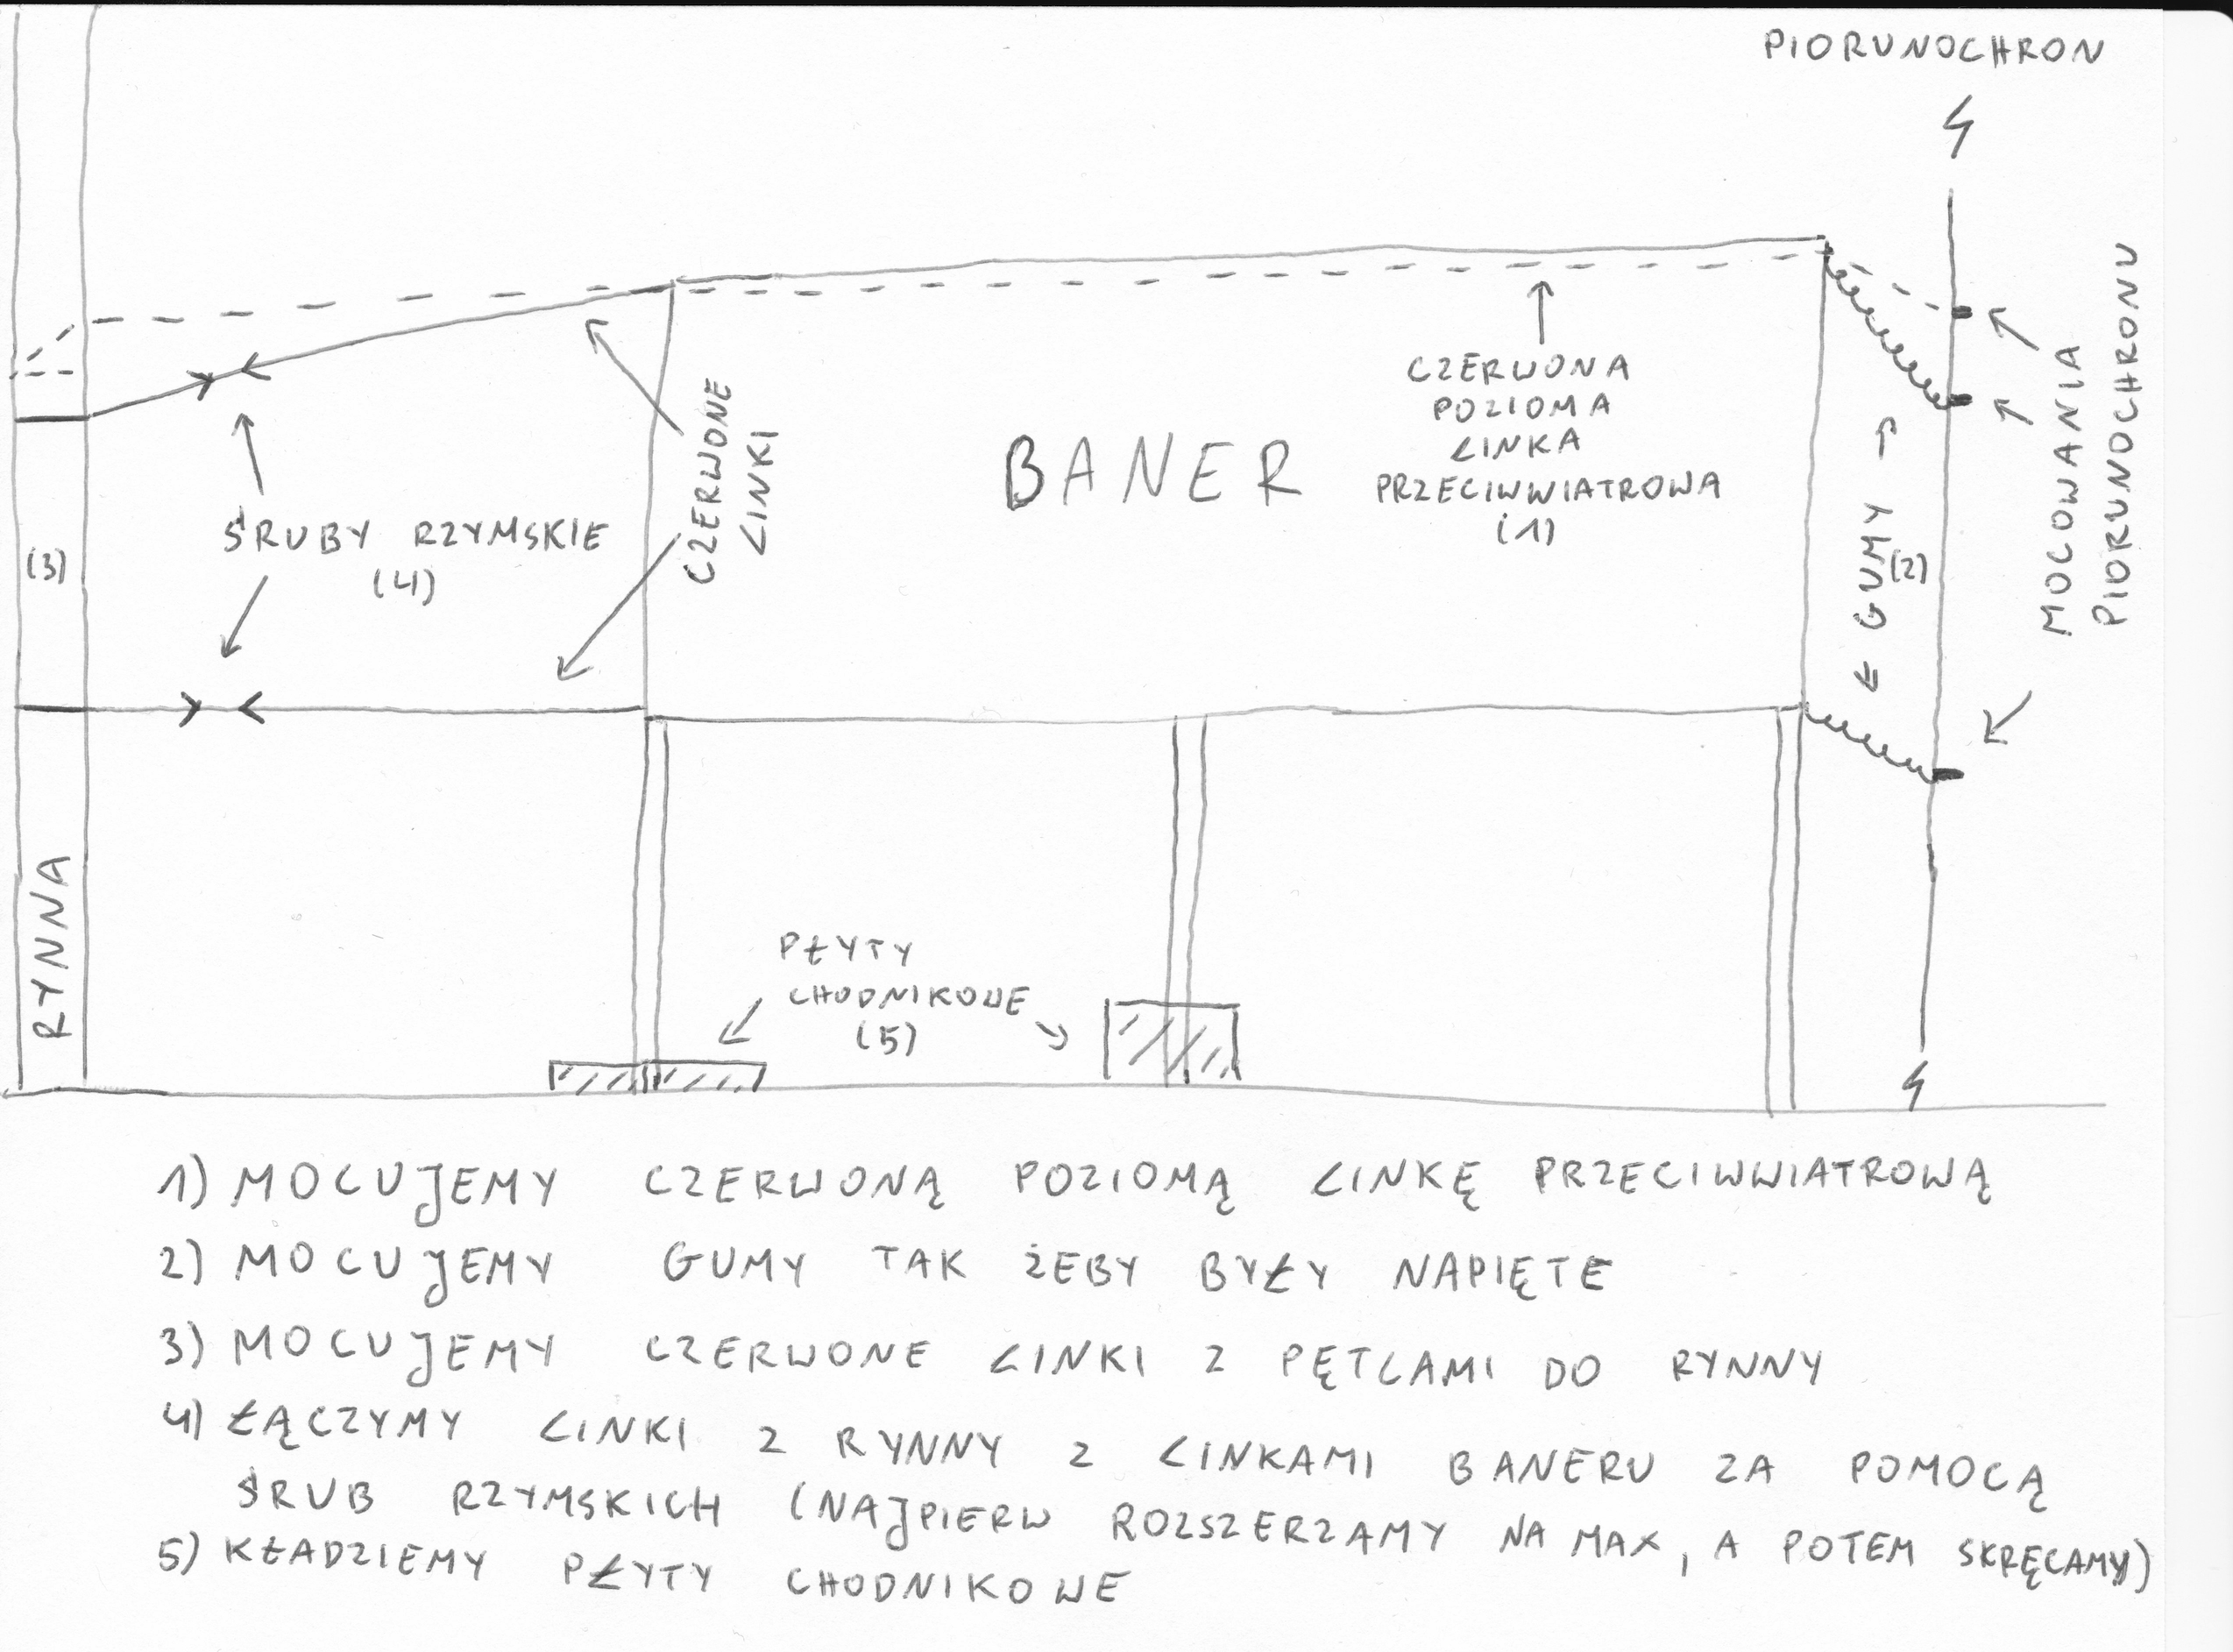 PIORUNOCHRON
CZERWONA
POZIOMA
LINKA
PRZECIWWIATROWA
(1)
CZERWONE
LINKI
BANER
MOCOWANIA
PIORUNOCHRONU
ŚRUBY RZYMSKIE
(4)
(3)
GUMY
(2)
RYNNA
PŁYTY
CHODNIKOWE
(5)
1) MOCUJEMY CZERWONĄ POZIOMĄ LINKĘ PRZECIWWIATROWĄ
2) MOCUJEMY GUMY TAK ŻEBY BYŁY NAPIĘTE
3) MOCUJEMY CZERWONE LINKI Z PĘTLAMI DO RYNNY
4) ŁĄCZYMY LINKI Z RYNNY Z LINKAMI BANERU ZA POMOCĄ
ŚRUB RZYMSKICH (NAJPIERW ROZSZERZAMY NA MAX, A POTEM SKRĘCAMY)
5) KŁADZIEMY PŁYTY CHODNIKOWE